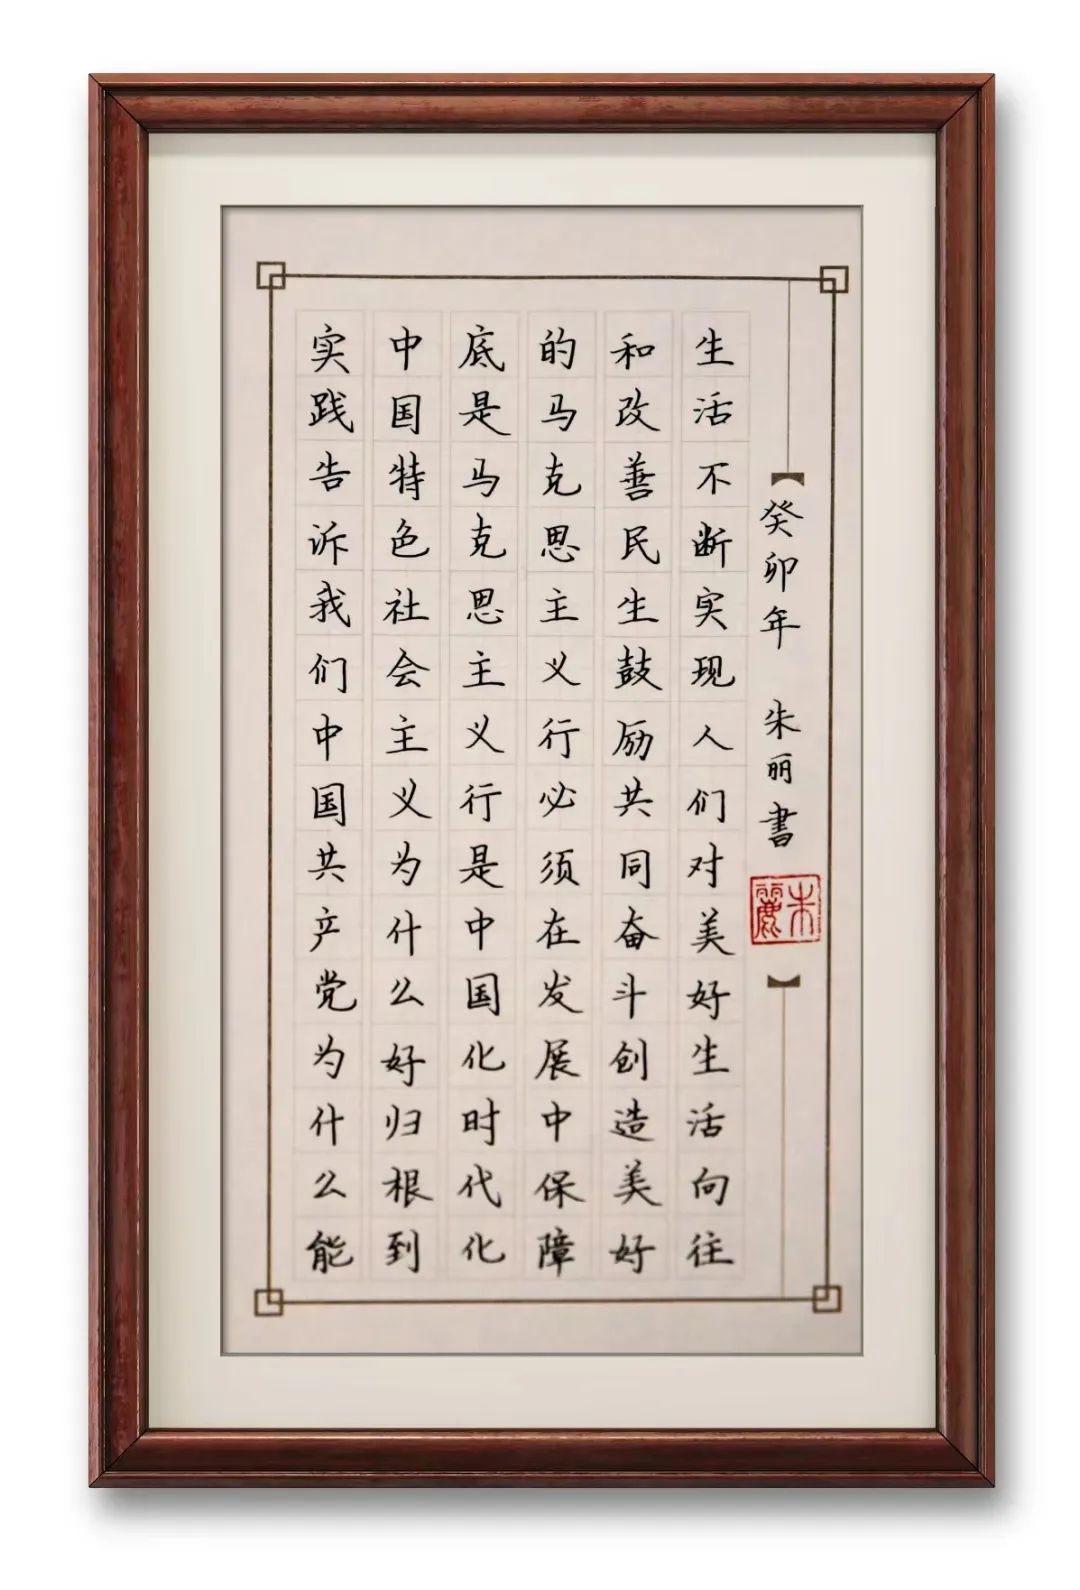 实践告诉我们中国共产党为什么能
中国特色社会主义为什么好归根到
底是马克思主义行是中国化时代化
的马克思主义行必须在发展中保障
和改善民生鼓励共同奋斗创造美好
生活不断实现人们对美好生活向往
癸卯年 朱丽書
朱麗